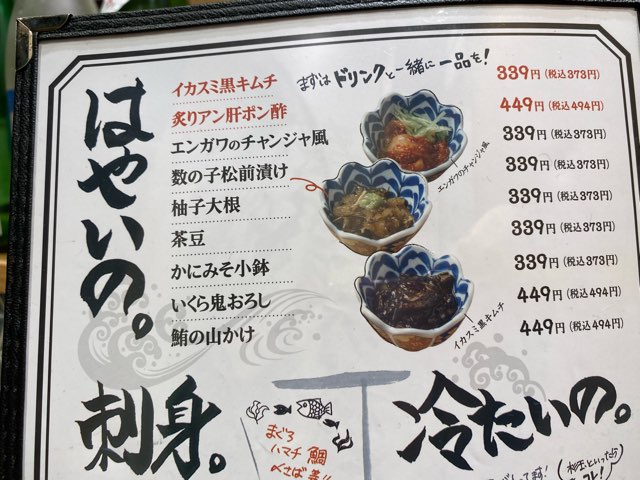 はやいの。
まずはドリンクと一緒に一品を!
イカスミ黒キムチ 339円(税込373円)
炙りアン肝ポン酢 449円(税込494円)
エンガワのチャンジャ風 339円(税込373円)
数の子松前漬け 339円(税込373円)
柚子大根 339円(税込373円)
茶豆 339円(税込373円)
かにみそ小鉢 339円(税込373円)
いくら鬼おろし 449円(税込494円)
鮪の山かけ 449円(税込494円)
エンガワのチャンジャ風
イカスミ黒キムチ
刺身。
まぐろ
ハマチ 鯛
〆さば
冷たいの。
といったら
コレ!